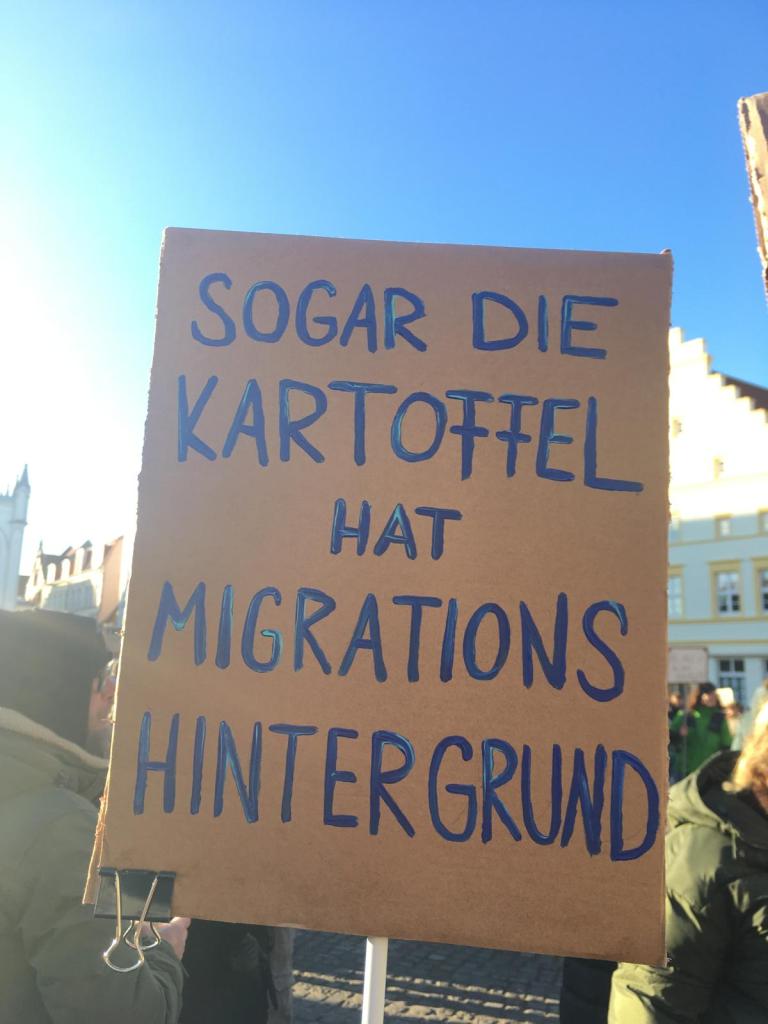 SOGAR DIE
KARTOFFEL
HAT
MIGRATIONS
HINTERGRUND